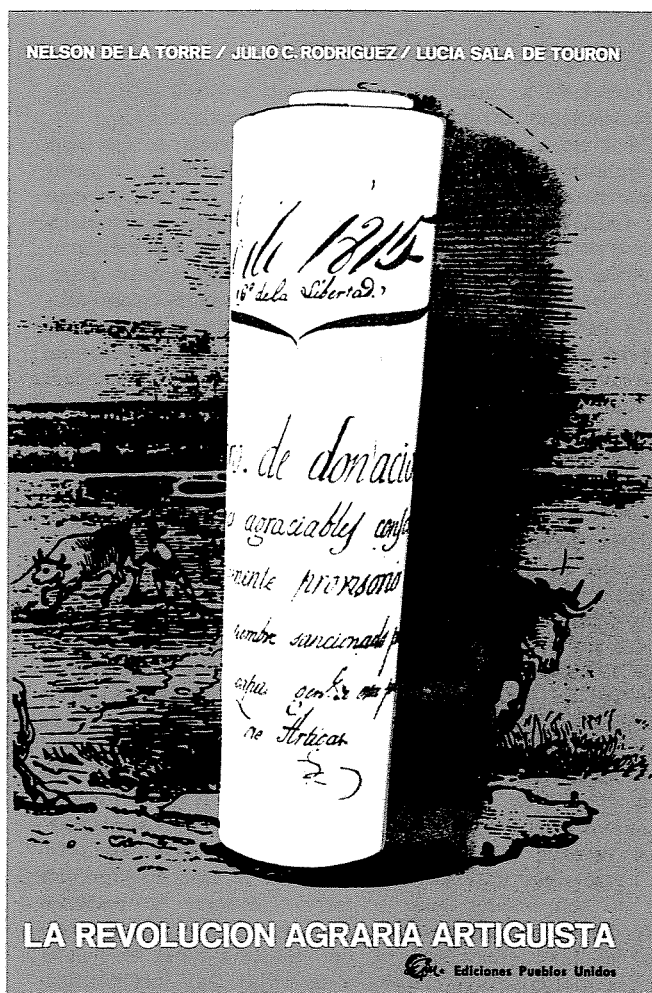 NELSON DE LA TORRE / JULIO C. RODRIGUEZ / LUCIA SALA DE TOURON
de 1815
6º de la Libertad.
de donacio
agraciables
provisorio
sancionado
de Artigas
LA REVOLUCION AGRARIA ARTIGUISTA
Ediciones Pueblos Unidos